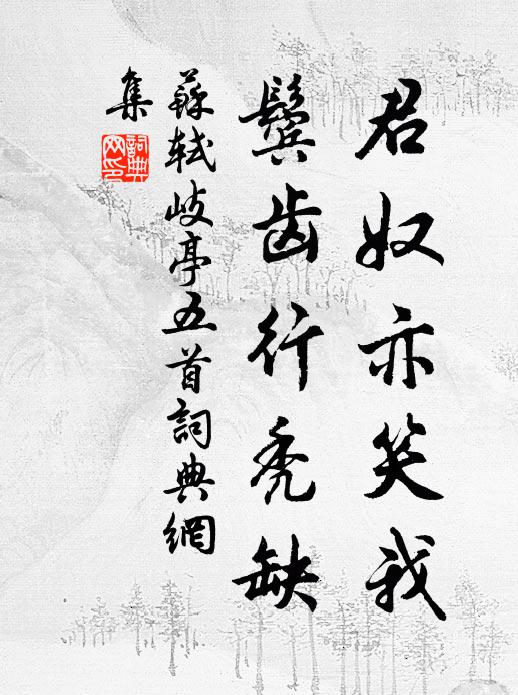 君奴亦笑我
鬓齿行秃缺
蘇軾岐亭五首詞典網
集
詞典
网印